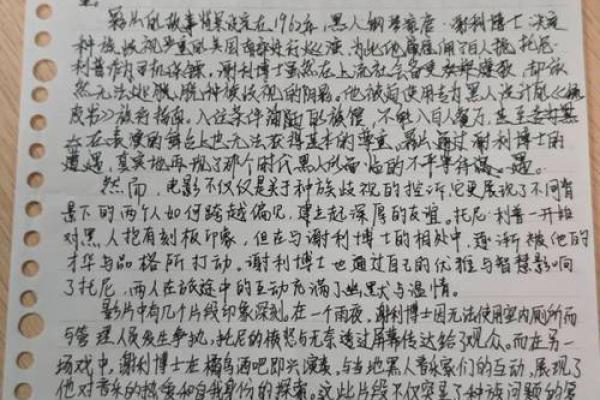 影片的故事背景设定在1962年,黑人钢琴家唐·谢利博士决定
种族歧视严重的美国南部进行巡演,为此他雇佣了白人托尼·
利普作为司机保镖。谢利博士虽然在上流社会备受欢迎,却依
然无法摆脱种族歧视的阴影。他被迫使用专为黑人设计的《绿
皮书》旅行指南。入住条件简陋的旅馆,不能入白人餐厅,甚至
在表演的舞台上也无法获得基本的尊重。影片通过谢利博士的
遭遇,真实地再现了那个时代黑人所面临的不平等待遇。
然而,电影不仅仅是关于种族歧视的控诉,它更展现了不同背
景下的两个人如何跨越偏见,建立起深厚的友谊。托尼·利普一开始
对黑人抱有刻板印象,但在与谢利博士的相处中,逐渐被他的
才华与品格所打动。谢利博士也通过自己的优雅与智慧影响
了托尼,两人在旅途中的互动充满了幽默与温情。
影片中有几个片段印象深刻。在一个雨夜,谢利博士因无法使用室内厕所而
与管理人员发生争执,托尼的愤怒与无奈透过屏幕传达给了观众。而在另一
场戏中,谢利博士在橘鸟酒吧即兴演奏,与当地黑人音乐家们的互动,展现了
他对音乐的热爱和自我身份的探索。这些片段不仅突显了种族问题的复